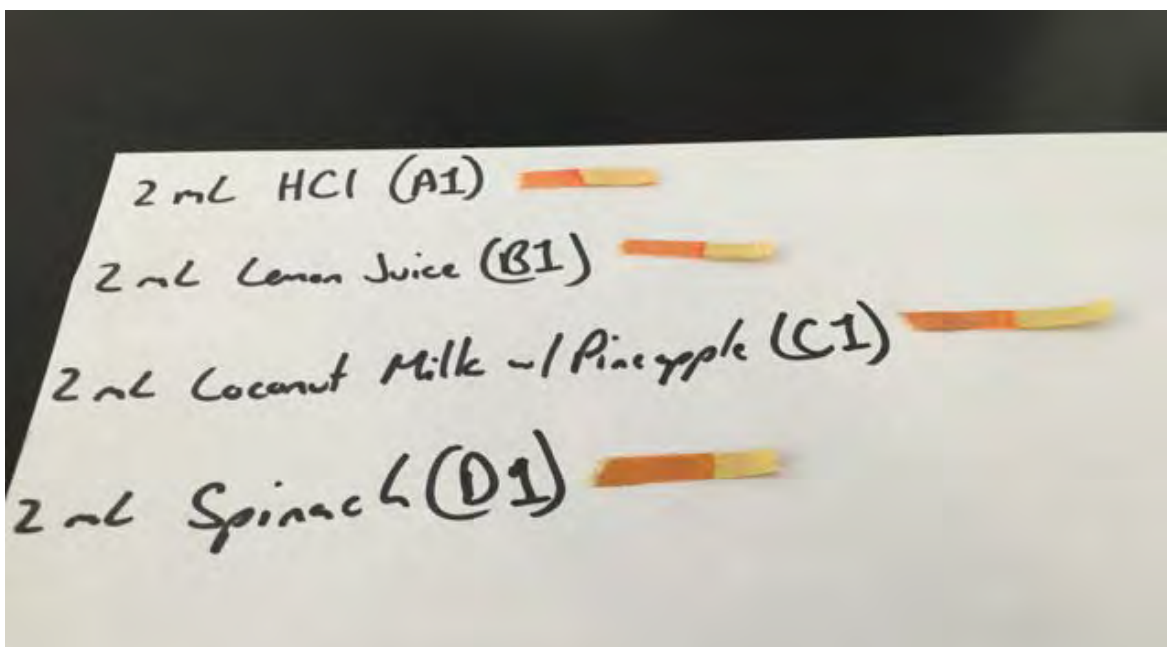 2 mL HCl (A1)
2 mL Lemon Juice (B1)
2 mL Coconut Milk w/ Pineapple (C1)
2 mL Spinach (D1)